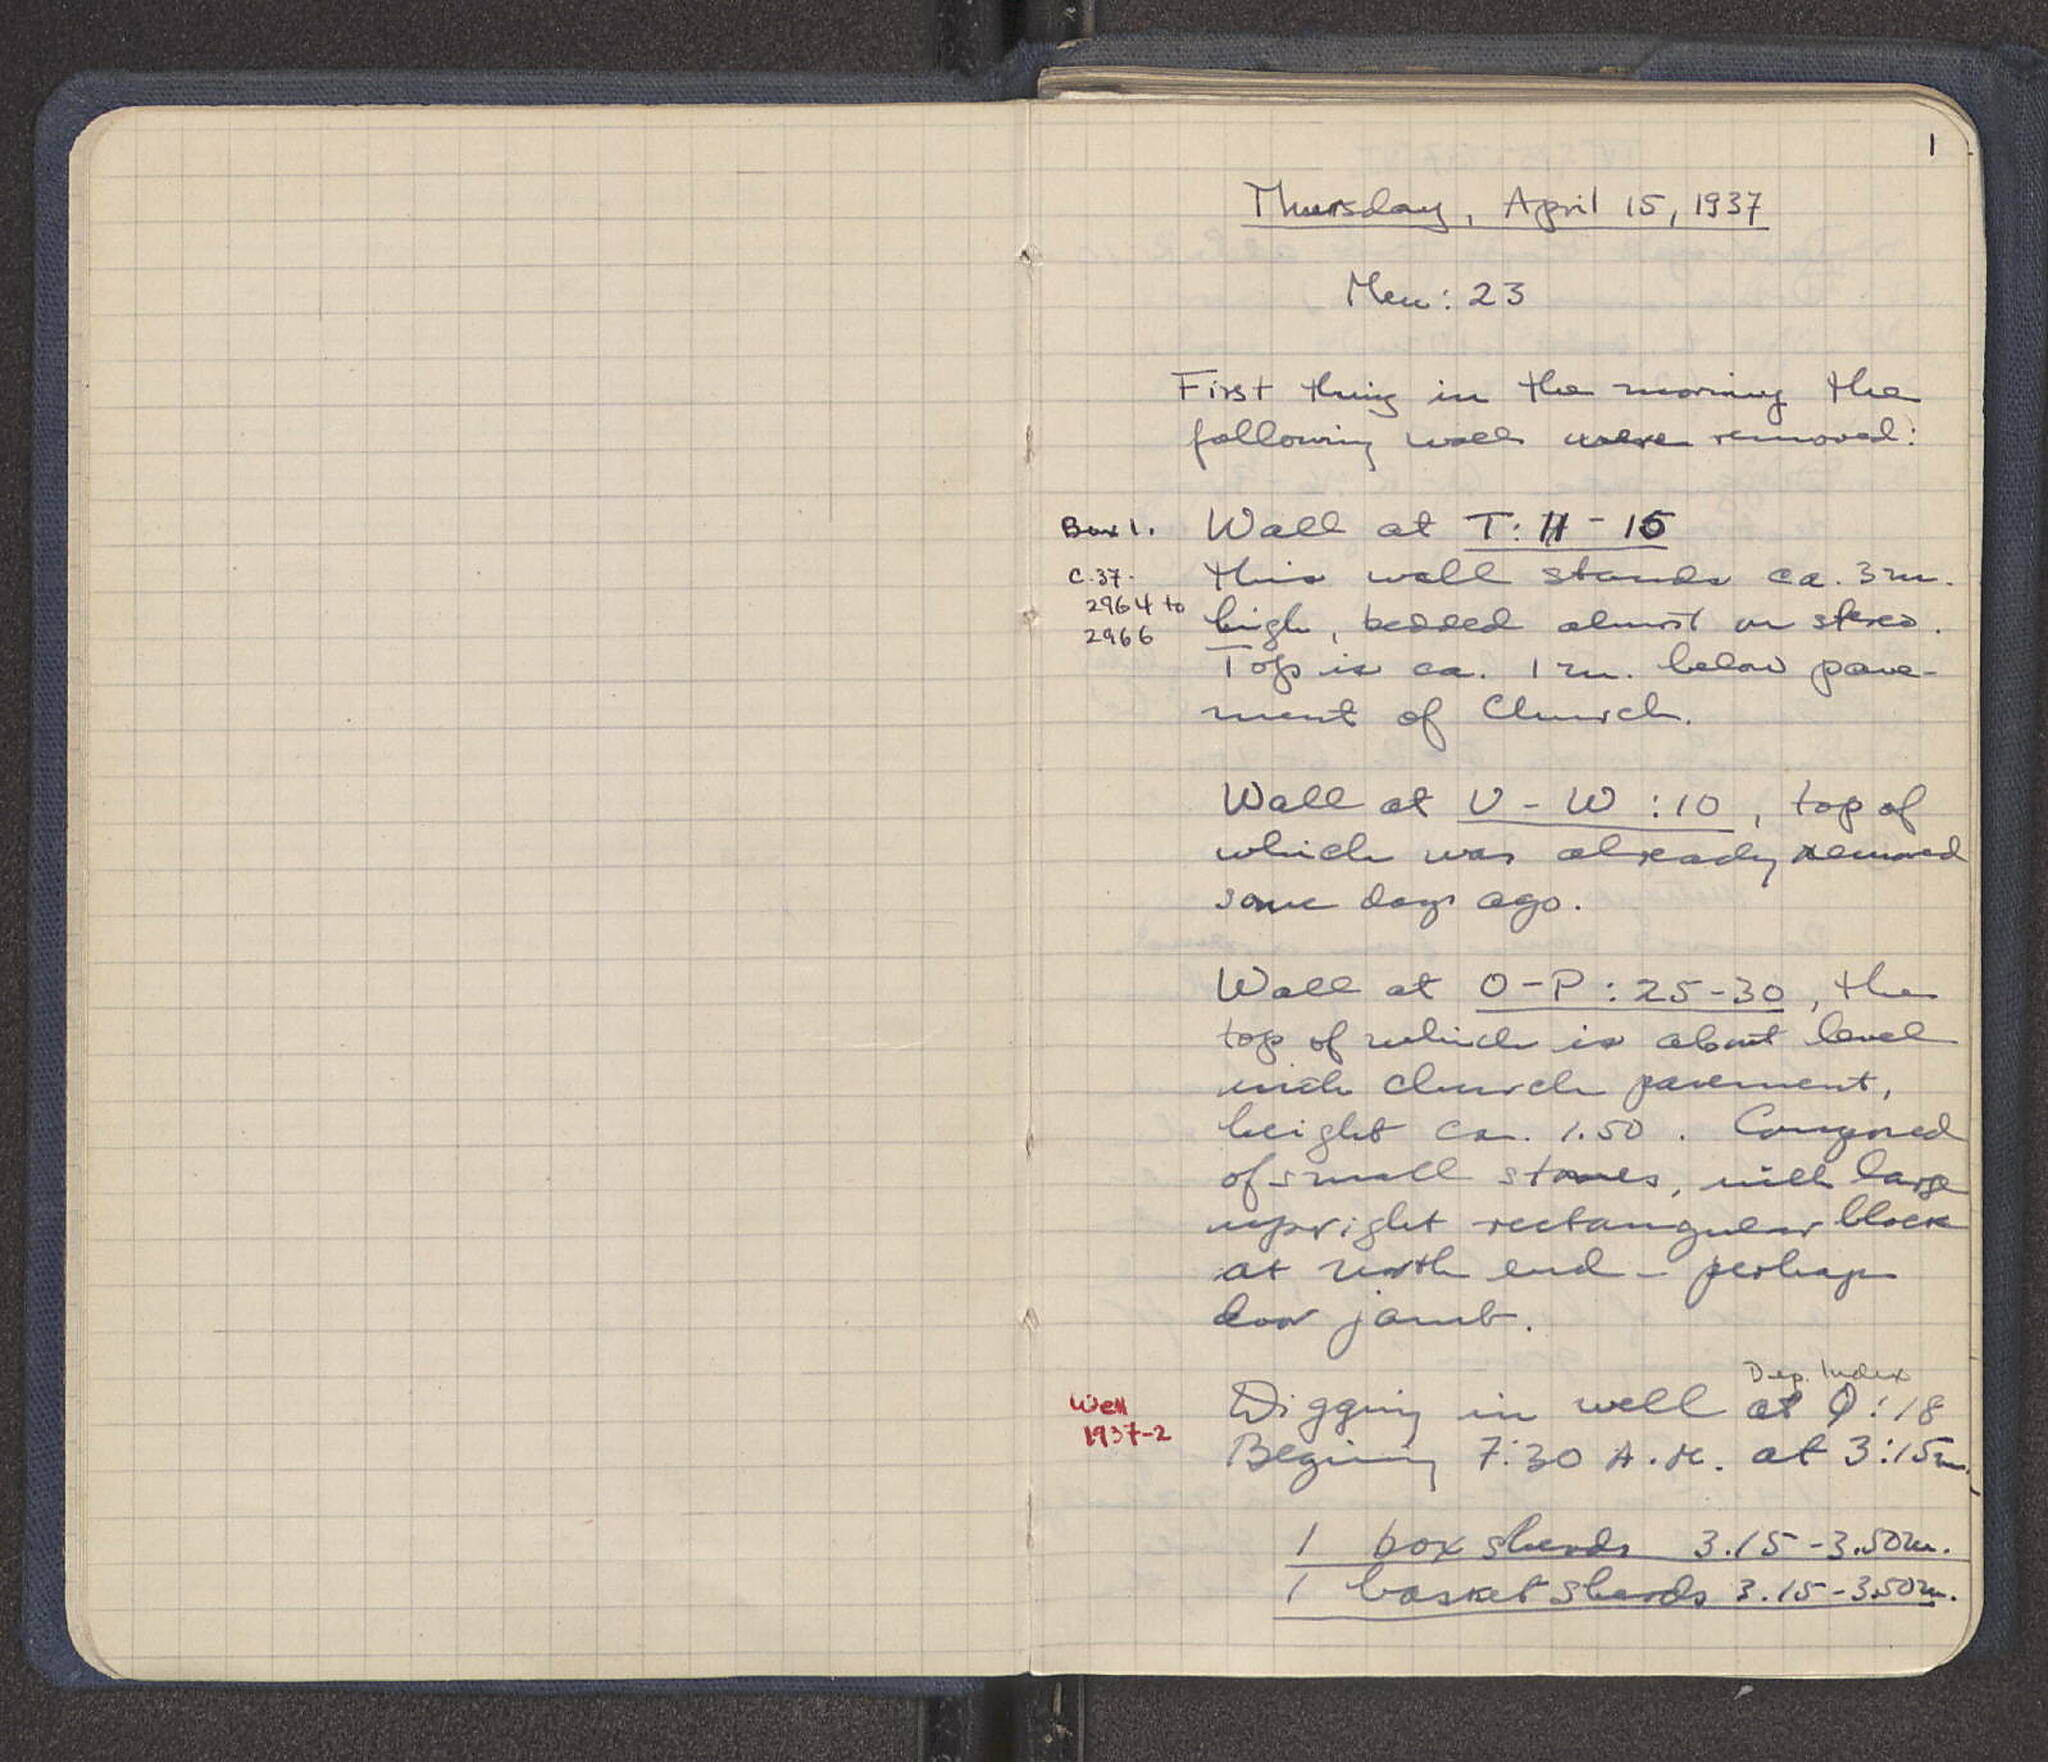 1
Thursday, April 15, 1937
Men: 23
First thing in the morning the
following walls were removed:
Box 1. Wall at T: H - 15
C.37.
2964 to
2966
this wall stands ca. 3m.
high, bedded almost on stereo.
Top is ca. 1 m. below pave-
ment of Church.
Wall at U - W : 10, top of
which was already removed
some days ago.
Wall at O - P : 25-30, the
top of which is about level
with church pavement,
height ca. 1.50. Composed
of small stones, with large
upright rectangular block
at north end - perhaps
door jamb.
Dep. Index
Well
1937-2
Digging in well at Q:18
Begining 7:30 A.M. at 3:15m.
1 box sherds 3.15-3.50m.
1 basket sherds 3.15-3.50m.